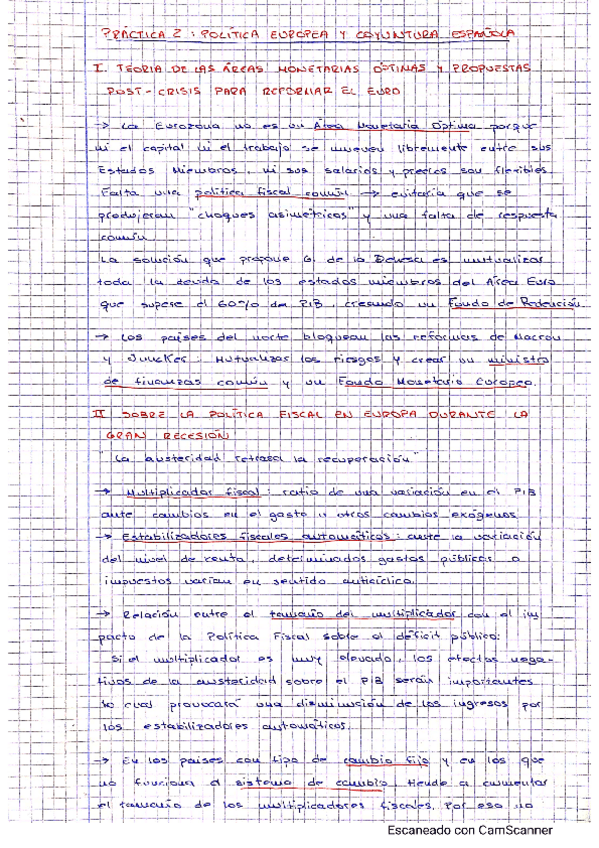 PRÁCTICA 2: POLÍTICA EUROPEA Y COYUNTURA ESPAÑOLA
I. TEORIA DE LAS ÁREAS MONETARIAS ÓPTIMAS Y PROPUESTAS
POST-CRISIS PARA REFORMAR EL EURO
→ La Eurozona no es un Área Monetaria Óptima porque
ni el capital ni el trabajo se mueven libremente entre sus
Estados Miembros, ni sus salarios y precios son flexibles.
Falta una política fiscal común → evitaria que se
produjeran "choques asimétricos" y una falta de respuesta
común.
La solución que propone G. de la Dehesa es mutualizar
toda la deuda de los estados miembros del Área Euro
que supere el 60% del PIB, creando un Fondo de Redención.
→ Los países del norte bloquean las reformas de Macron
y Juncker: Mutualizar los riesgos y crear un ministro
de finanzas común y un Fondo Monetario Europeo.
II SOBRE LA POLÍTICA FISCAL EN EUROPA DURANTE LA
GRAN RECESIÓN
"La austeridad retrasa la recuperación"
→ Multiplicador fiscal: ratio de una variación en el PIB
ante cambios en el gasto u otros cambios exógenos
→ Estabilizadores fiscales automáticos: ante la variación
del nivel de renta, determinados gastos públicos o
impuestos varían en sentido anticíclico.
→ Relación entre el tamaño del multiplicador con el im
pacto de la Política Fiscal sobre el déficit público:
Si el multiplicador es muy elevado, los efectos nega-
tivos de la austeridad sobre el PIB serán importantes
lo cual provocará una disminución de los ingresos por
los estabilizadores automáticos.
→ En los países con tipo de cambio fijo y en los que
no funciona el sistema de cambio, tiende a aumentar
el tamaño de los multiplicadores fiscales. Por eso no
Escaneado con CamScanner